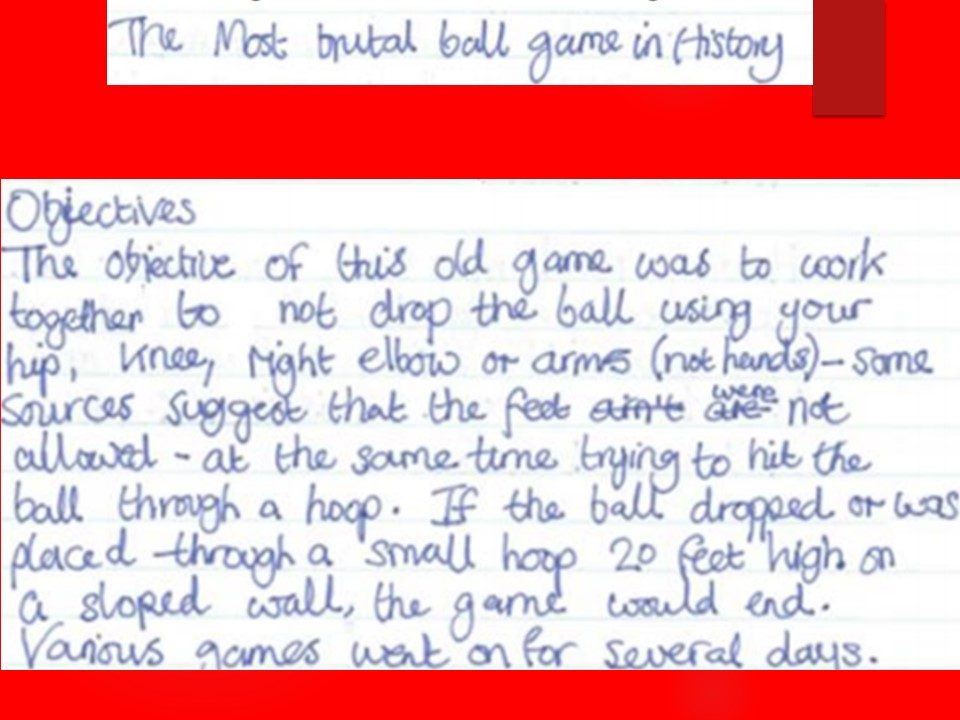 The Most brutal ball game in History
Objectives
The objective of this old game was to work
together to not drop the ball using your
hip, knee, right elbow or arms (not hands) – some
sources suggest that the feet ain't are were not
allowed - at the same time trying to hit the
ball through a hoop. If the ball dropped or was
placed through a small hoop 20 feet high on
a sloped wall, the game would end.
Various games went on for several days.